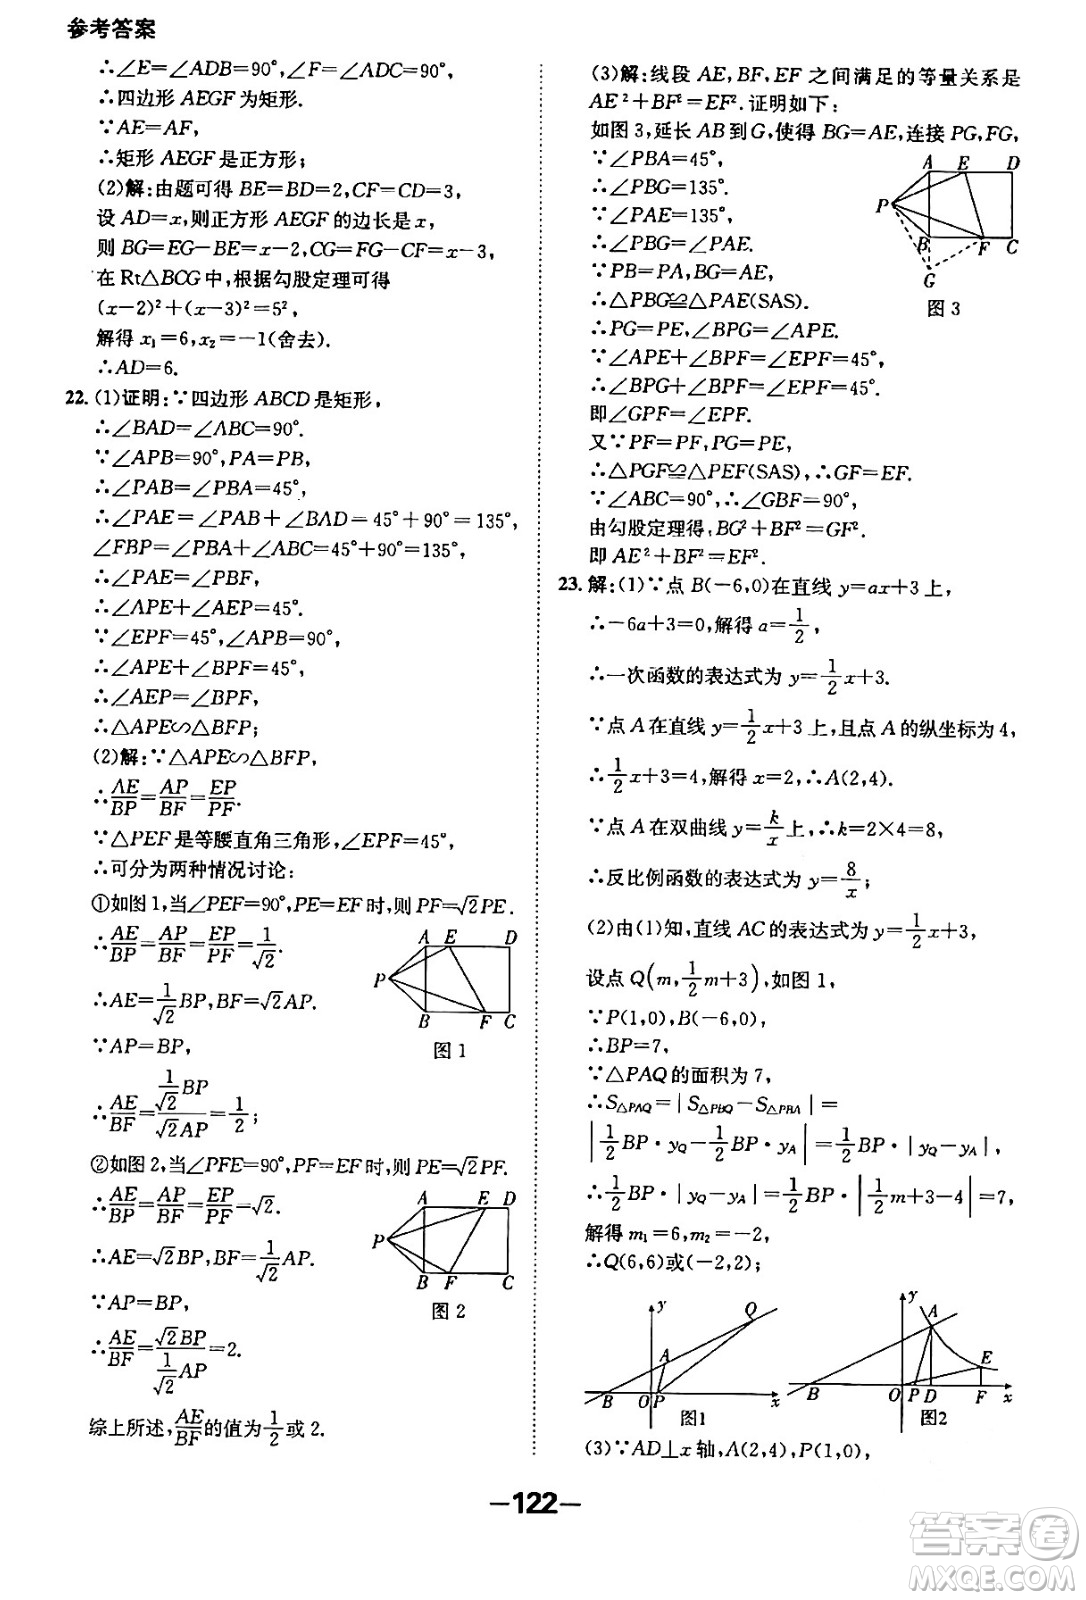 参考答案
∴∠E=∠ADB=90°,∠F=∠ADC=90°,
∴四边形 AEGF 为矩形.
∵AE=AF,
∴矩形 AEGF 是正方形;
(2)解:由题可得 BE=BD=2,CF=CD=3,
设 AD=x,则正方形 AEGF 的边长是 x,
则 BG=EG-BE=x-2,CG=FG-CF=x-3,
在 Rt△BCG 中,根据勾股定理可得
(x-2)²+(x-3)²=5²,
解得 x₁=6,x₂=-1(舍去).
∴AD=6.
22.(1)证明:∵四边形 ABCD 是矩形,
∴∠BAD=∠ABC=90°.
∵∠APB=90°,PA=PB,
∴∠PAB=∠PBA=45°,
∴∠PAE=∠PAB+∠BAD=45°+90°=135°,
∠FBP=∠PBA+∠ABC=45°+90°=135°,
∴∠PAE=∠PBF,
∴∠APE+∠AEP=45°,
∵∠EPF=45°,∠APB=90°,
∴∠APE+∠BPF=45°,
∴∠AEP=∠BPF,
∴△APE∽△BFP;
(2)解:∵△APE∽△BFP,
∴AE/BP=AP/BF=EP/PF.
∵△PEF 是等腰直角三角形,∠EPF=45°,
∴可分为两种情况讨论:
①如图 1,当∠PEF=90°,PE=EF 时,则 PF=√2PE.
∴AE/BP=AP/BF=EP/PF=1/√2.
∴AE=1/√2BP,BF=√2AP.
∵AP=BP,
∴AE/BF=(1/√2BP)/(√2AP)=1/2;
A E D
P
B F C
图 1
②如图 2,当∠PFE=90°,PF=EF 时,则 PE=√2PF.
∴AE/BP=AP/BF=EP/PF=√2.
∴AE=√2BP,BF=1/√2AP.
∵AP=BP,
∴AE/BF=(√2BP)/(1/√2AP)=2.
A E D
P
B F C
图 2
综上所述,AE/BF的值为1/2或 2.
(3)解:线段 AE,BF,EF 之间满足的等量关系是
AE²+BF²=EF².证明如下:
如图 3,延长 AB 到 G,使得 BG=AE,连接 PG,FG,
∵∠PBA=45°,
∴∠PBG=135°.
∵∠PAE=135°,
∴∠PBG=∠PAE.
∵PB=PA,BG=AE,
∴△PBG≌△PAE(SAS).
∴PG=PE,∠BPG=∠APE.
∵∠APE+∠BPF=∠EPF=45°,
∴∠BPG+∠BPF=∠EPF=45°.
即∠GPF=∠EPF.
又∵PF=PF,PG=PE,
∴△PGF≌△PEF(SAS),∴GF=EF.
∵∠ABC=90°,∴∠GBF=90°,
由勾股定理得,BG²+BF²=GF².
即 AE²+BF²=EF².
A E D
P
B F C
G
图 3
23.解:(1)∵点 B(-6,0)在直线 y=ax+3 上,
∴-6a+3=0,解得 a=1/2,
∴一次函数的表达式为 y=1/2x+3.
∵点 A 在直线 y=1/2x+3 上,且点 A 的纵坐标为 4,
∴1/2x+3=4,解得 x=2,∴A(2,4).
∵点 A 在双曲线 y=k/x上,∴k=2×4=8,
∴反比例函数的表达式为 y=8/x;
(2)由(1)知,直线 AC 的表达式为 y=1/2x+3,
设点 Q(m,1/2m+3),如图 1,
∵P(1,0),B(-6,0),
∴BP=7,
∵△PAQ 的面积为 7,
∴S△PAQ=|S△PBQ-S△PBA|=
|1/2BP·yQ-1/2BP·yA|=1/2BP·|yQ-yA|,
∴1/2BP·|yQ-yA|=1/2BP·|1/2m+3-4|=7,
解得 m₁=6,m₂=-2,
∴Q(6,6)或(-2,2);
y Q
A
B O P x
图1
y
A
E
B O P D F x
图2
(3)∵AD⊥x 轴,A(2,4),P(1,0),
-122-
答案圈
MXQE.COM